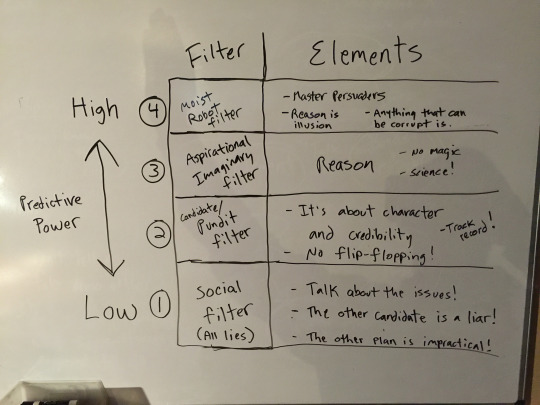 Filter Elements
High
4
Moist
Robot
filter
- Master Persuaders
- Reason is
illusion
- Anything that can
be corrupt is.
3
Aspirational
Imaginary
filter
Reason
- No magic
- science!
Predictive
Power
2
Candidate/
Pundit
filter
- It's about character
and credibility
- Track
record!
- No flip-flopping!
Low
1
Social
filter
(All lies)
- Talk about the issues!
- The other candidate is a liar!
- The other plan is impractical!